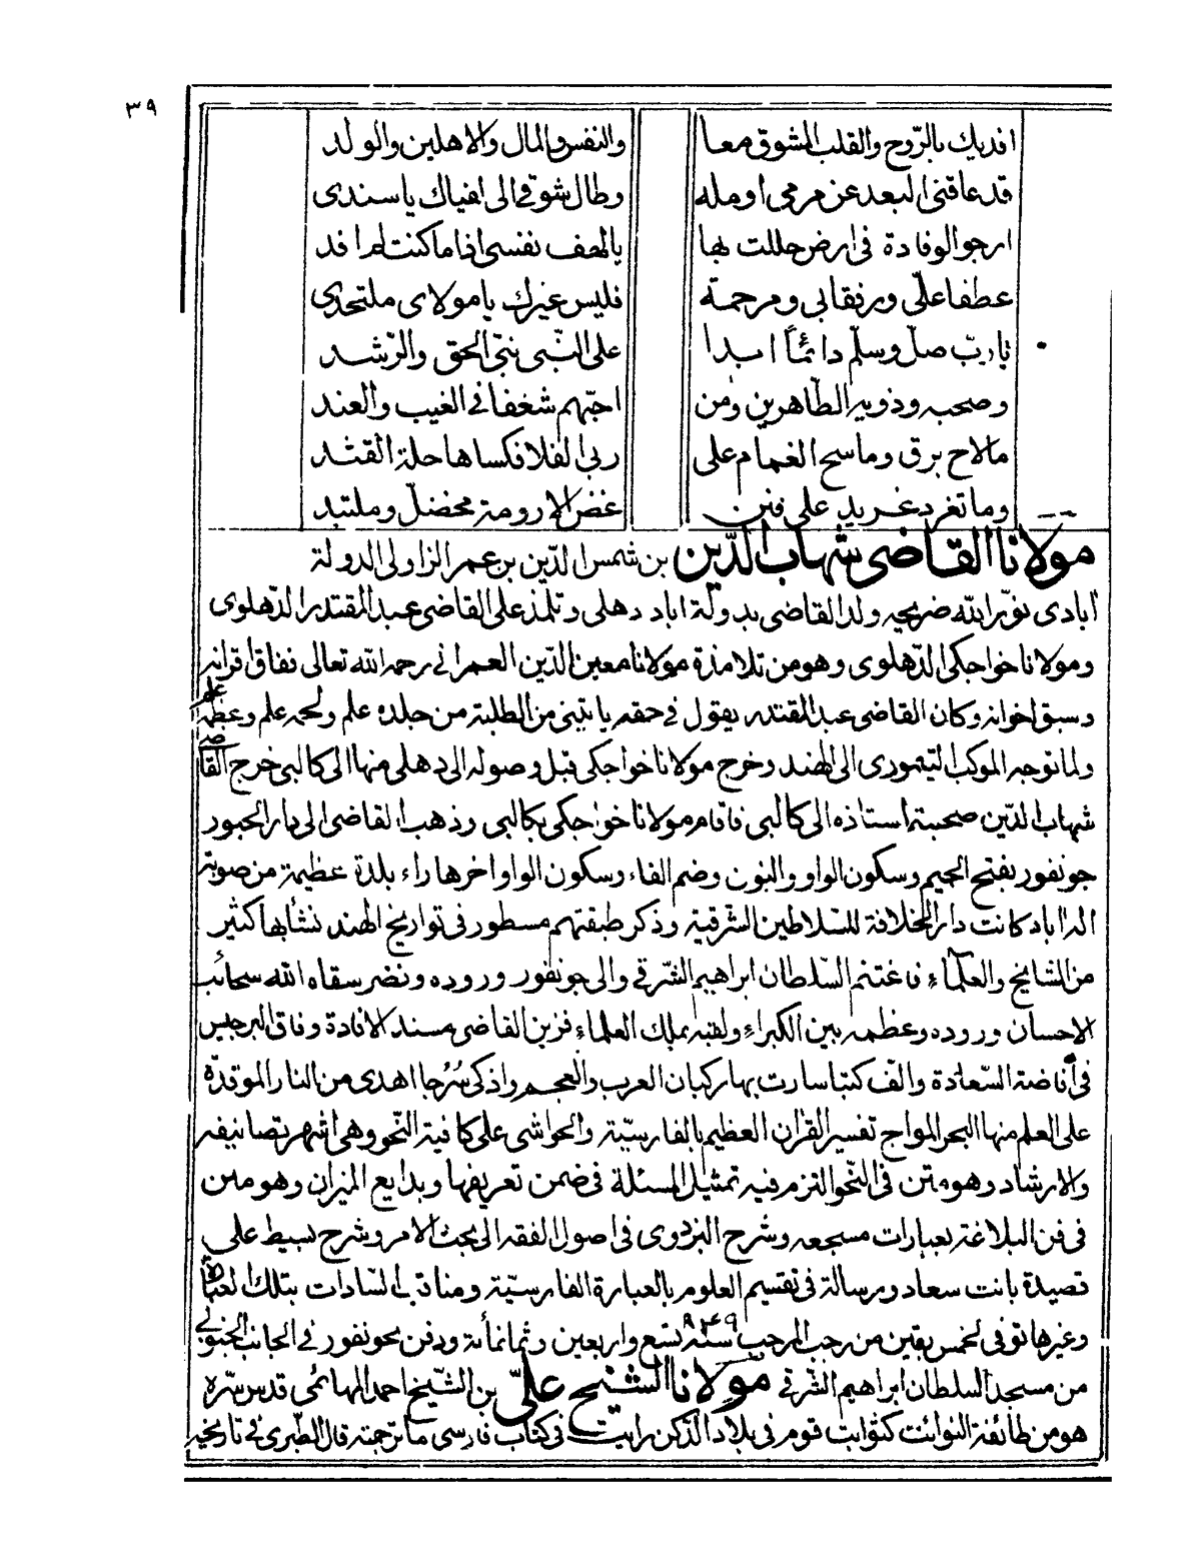 ٣٩
افديك بالرّوح والقلب المشوق معا والنفس والمال والاهلين والولد
قد عاقنى البعد عن مرمى اومله وطال شوقى الى لقياك يا سندى
ارجو الوفادة فى ارض حللت بها يا لهف نفسى اذا ما كنت لم افد
عطفا علّى ورفقا بى ومرحمة فليس غيرك يا مولاى ملتحدى
يا ربّ صل وسلم دائمًا ابدا على النّبى نبى الحق والرّشد
وصحبه وذويه الطاهرين ومن احبّهم شغفا فى الغيب والعند
مالاح برق وما سح الغمام على ربى الفلا فكساها حلة القشد
وما تغرد غريد على فنن غض الارومة مخضلّ وملتبد
مولانا القاضى شهاب الدّين بن شمس الدّين بن عمر الزاولى الدولة
ابادى نوّر الله ضريحه ولد القاضى بدولة اباد دهلى وتلمذ على القاضى عبد المقتدر الدّهلوى
ومولانا خواجكى الدّهلوى وهو من تلامذة مولانا معين الدّين العمرانى رحمه الله تعالى ففاق اقرانه
وسبق اخوانه وكان القاضى عبد المقتدر يقول فى حقه ياتينى من الطلبة من جلده علم ولحمه علم وعظمه علم
ولما توجه الموكب التيمورى الى الهند وخرج مولانا خواجكى قبل وصوله الى دهلى منها الى كالپى خرج القاضى
شهاب الدّين صحبة استاذه الى كالپى فاقام مولانا خواجكى بكالپى وذهب القاضى الى دار الحبور
جونفور بفتح الجيم وسكون الواو والنون وضم الفاء وسكون الواو اخرها راء بلدة عظيمة من صوبة
اله اباد كانت دار الخلافة للسّلاطين الشرقية وذكر طبقتهم مسطور فى تواريخ الهند نشأ بها كثير
من المشايخ والعلماء فاغتنم السّلطان ابراهيم الشّرقى والى جونفور وروده ونضر سقاه الله سحائب
الاحسان وروده وعظمه بين الكبراء ولقبه بملك العلماء فزين القاضى مسند الافادة وفاق البرجيس
فى افاضة السّعادة والّف كتبا سارت بها ركبان العرب والعجم واذكى سُرُجا اهدى من النار الموقدة
على العلم منها البحر المواج تفسير القران العظيم بالفارسيّة والحواشى على كافية النّحو وهى اشهر تصانيفه
والارشاد وهو متن فى النّحو التزم فيه تمثيل المسئلة فى ضمن تعريفها وبدايع الميزان وهو متن
فى فن البلاغة بعبارات مسجعه وشرح البزدوى فى اصول الفقه الى بحث الامر وشرح بسيط على
قصيدة بانت سعاد ورسالة فى تقسيم العلوم بالعبارة الفارسيّة ومناقب السّادات بتلك العبارة
وغيرها توفى لخمس بقين من رجب المرجب سنة ٨٤٩ تسع واربعين وثمانمأئة ودفن بجونفور فى الجانب الجنوبى
من مسجد السلطان ابراهيم الشّرقى مولانا الشيخ علىّ بن الشّيخ احمد المهائمى قدس سرّه
هو من طائفة النوائت كثوابت قوم فى بلاد الدّكن رايت فى كتاب فارسى ما ترجمته قال الطّبرى فى تاريخه